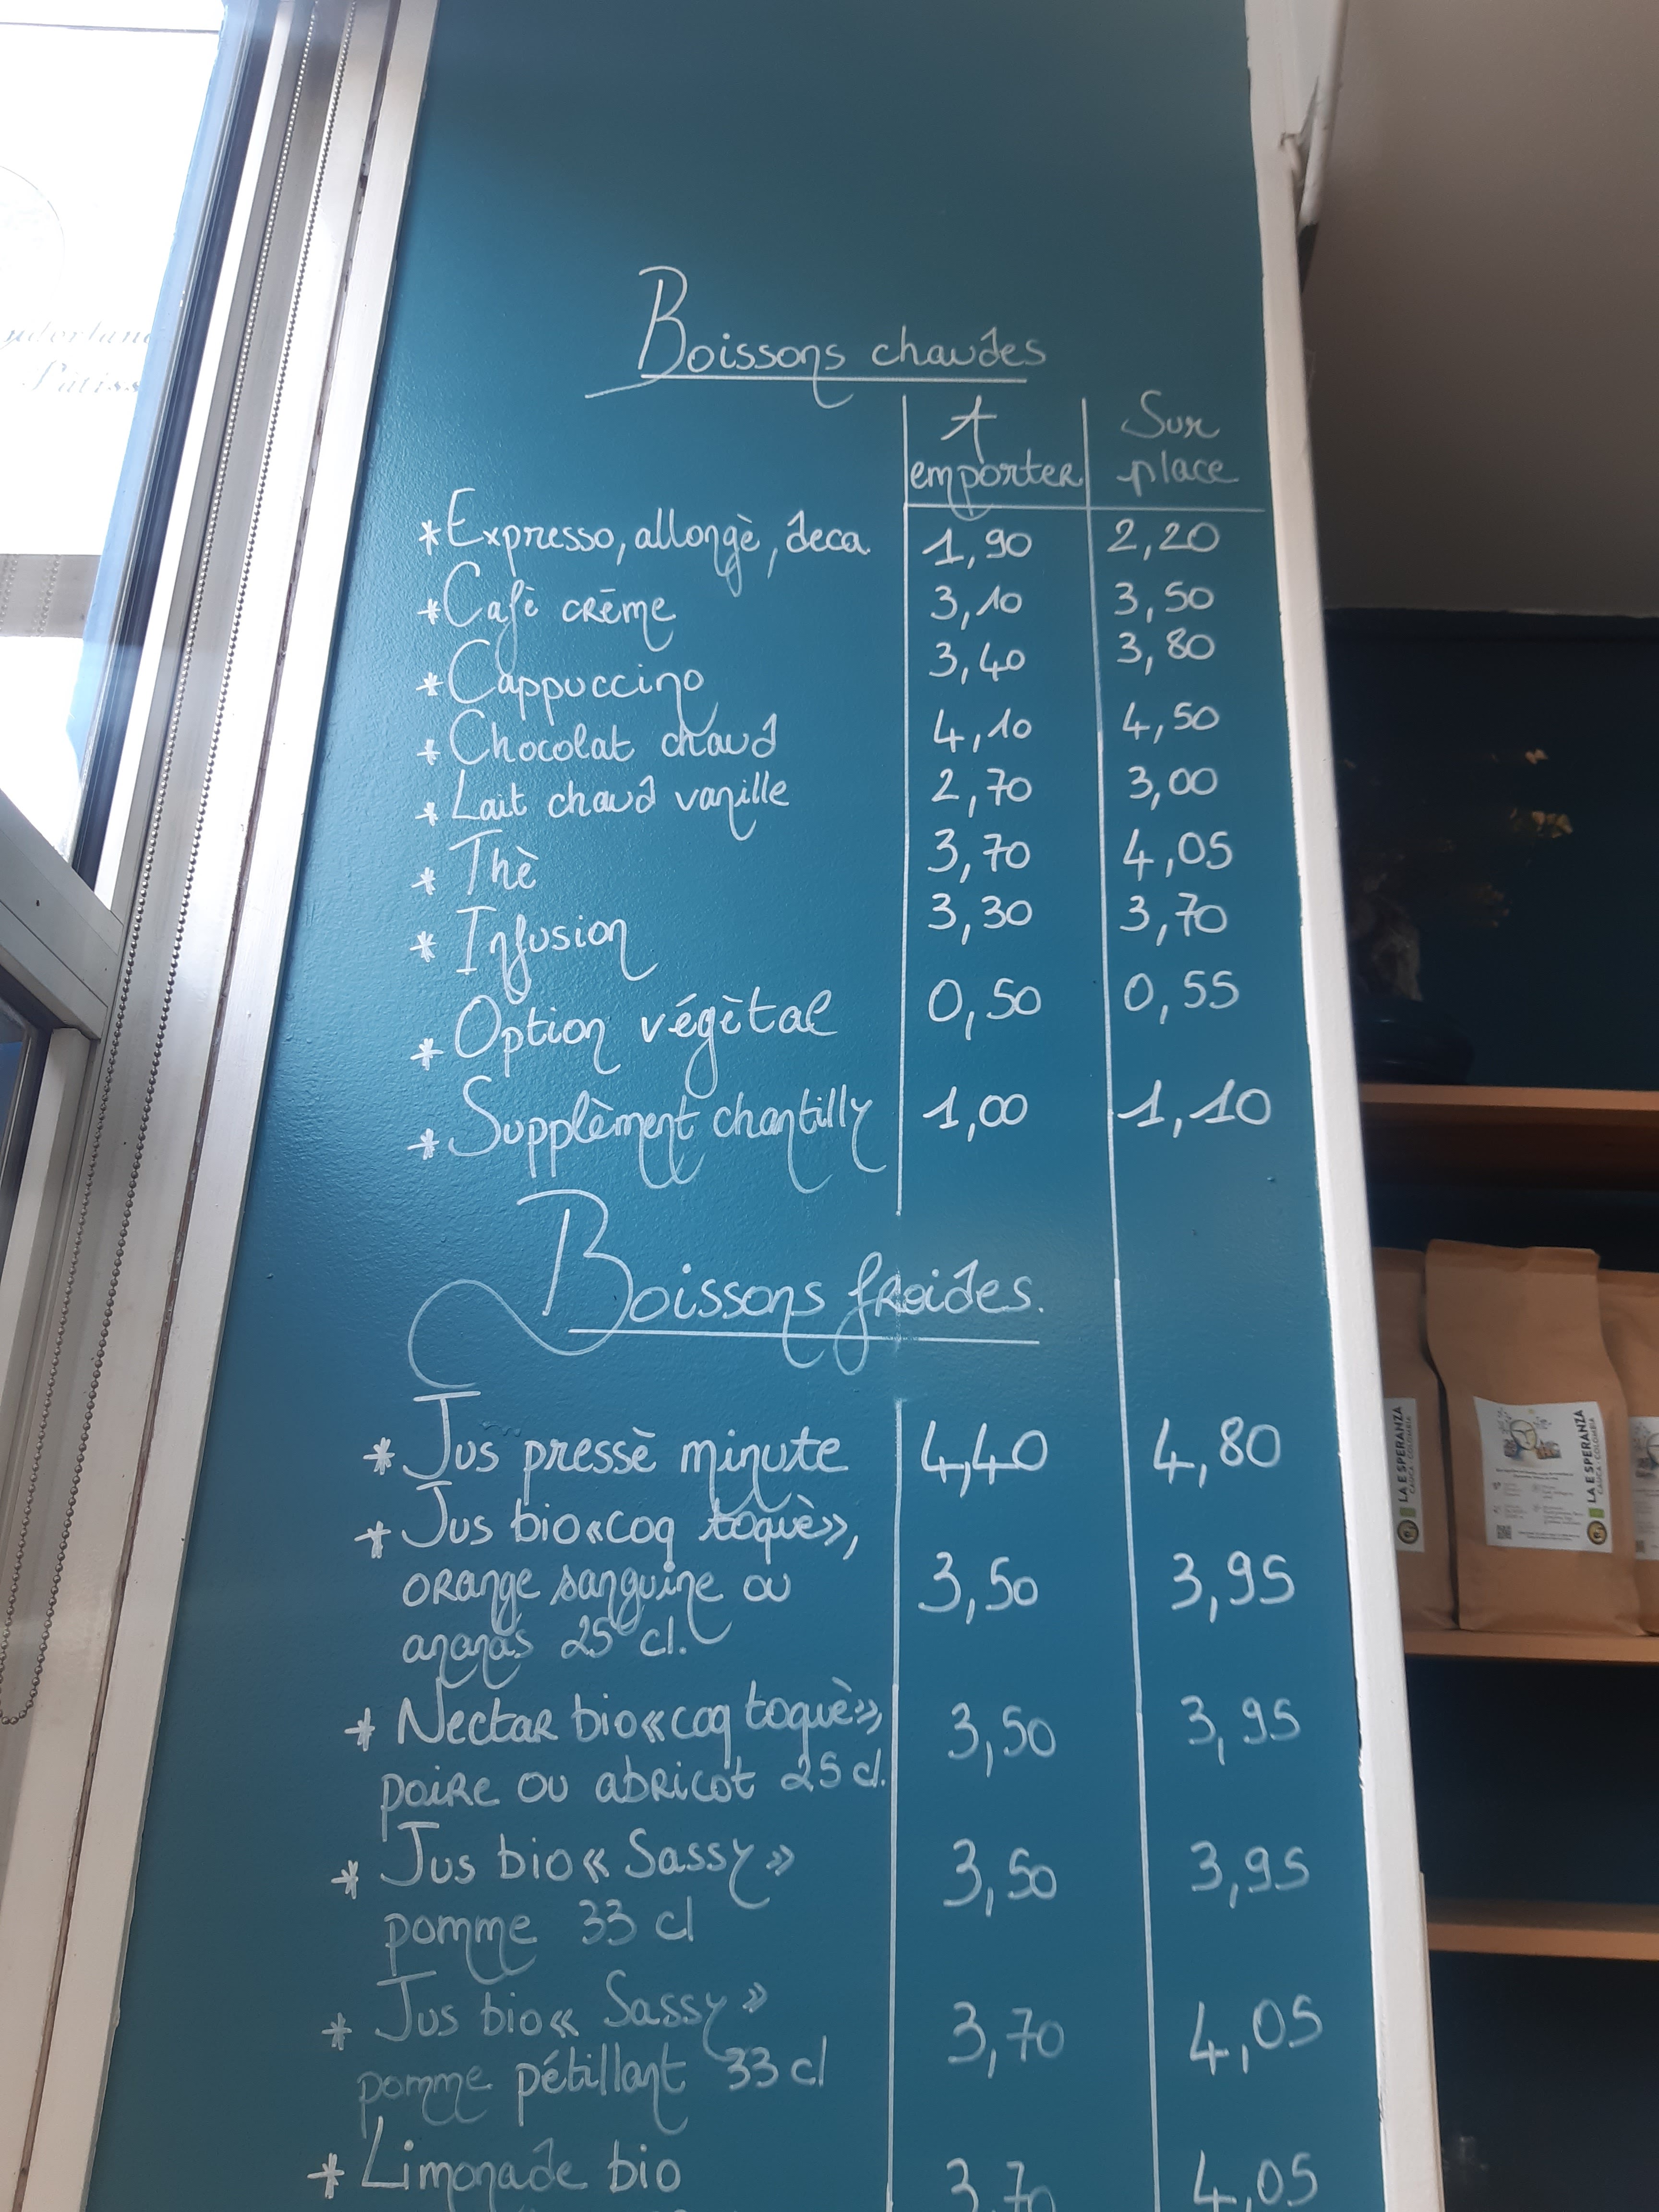 Boissons chaudes
A emporter
Sur place
*Expresso, allongè, deca 1,90 2,20
*Cafè crème 3,10 3,50
*Cappuccino 3,40 3,80
*Chocolat chaud 4,10 4,50
*Lait chaud vanille 2,70 3,00
*Thè 3,70 4,05
*Infusion 3,30 3,70
*Option végètal 0,50 0,55
*Supplèment chantilly 1,00 1,10
Boissons froides.
*Jus pressè minute 4,40 4,80
*Jus bio «coq toquè»,
orange sanguine ou 3,50 3,95
ananas 25 cl.
*Nectar bio «coq toquè», 3,50 3,95
poire ou abricot 25 cl.
*Jus bio « Sassy » 3,50 3,95
pomme 33 cl
*Jus bio « Sassy » 3,70 4,05
pomme pétillant 33 cl
*Limonade bio 3,70 4,05
LA ESPERANZA
CAUCA - COLOMBIA
LA ESPERANZA
CAUCA - COLOMBIA